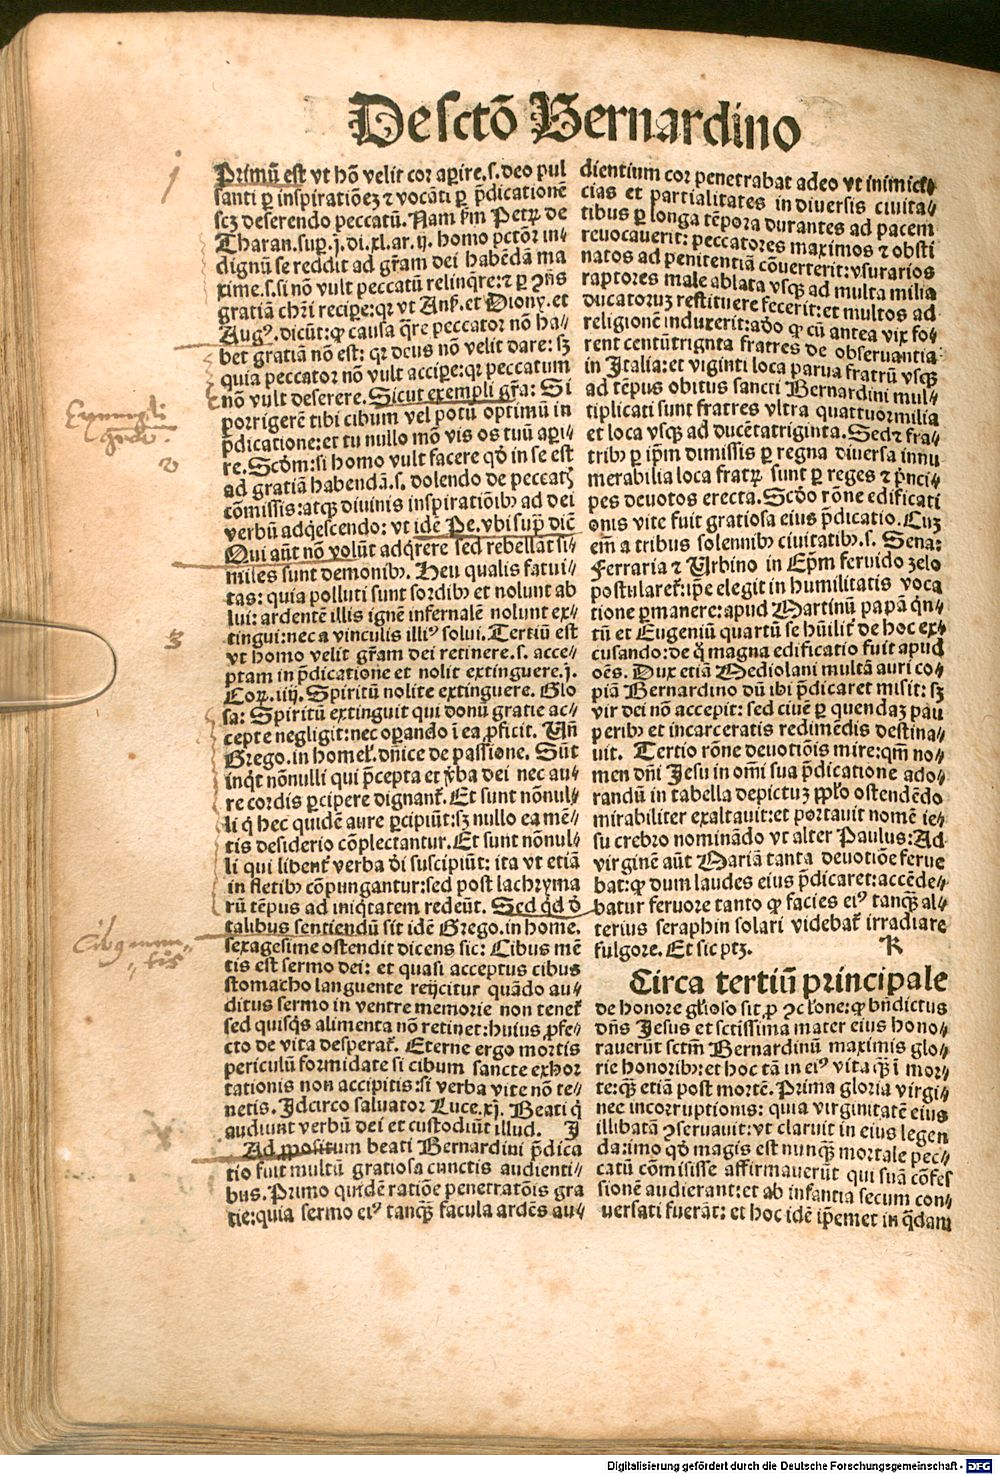 De sctō Bernardino
Primū est vt hō velit cor aperire.s.deo pul
santi ꝑ inspiratiōeꝫ ⁊ vocāti ꝑ p̄dicationē
scꝫ deserendo peccatū. Nam ẜm Petrꝝ de
Tharan.suꝑ.j.di.xl.ar.ij. homo pctōr in-
dignū se reddit ad gr̄am dei habēdā ma
xime.s.si nō vult peccatū relinq̄re:⁊ ꝑ ꝯn̄s
gratiā chr̄i recipe:qꝛ vt Anẜ.et Diony.et
Augꝰ.dicūt:ꝙ causa q̄re peccator nō ha//
bet gratiā nō est: qꝛ deus nō velit dare: sꝫ
quia peccator nō vult accipe:qꝛ peccatum
nō vult deserere. Sicut exempli gr̄a: Si
porrigerē tibi cibum vel potū optimū in
p̄dicatione:et tu nullo mō vis os tuū aperi-
re. Scd̄m:si homo vult facere qd̄ in se est
ad gratiā habendā.s. dolendo de peccatꝭ
cōmissis:atqꝫ diuinis inspiratiōibꝰ ad dei
verbū adq̄escendo: vt idē Pe.vbi supͣ dic̄
Qui aūt nō volūt adq̄rere sed rebellāt si-
miles sunt demonibꝰ. Heu qualis fatui-
tas: quia polluti sunt sordibꝰ et nolunt ab
lui: ardentē illis ignē infernalē nolunt ex-
tingui:nec a vinculis illiꝰ solui. Tertiū est
vt homo velit gr̄am dei retinere.s. acce-
ptam in p̄dicatione et nolit extinguere.j.
Corꝝ.iiij. Spiritū nolite extinguere. Glo
sa: Spiritū extinguit qui donū gratie ac-
cepte negligit:nec operando ī ea ꝓficit. Vn̄
Grego.in homel'.dn̄ice de passione. Sūt
inqͥt nōnulli qui p̄cepta et v̄ba dei nec au-
re cordis ꝑcipere dignant̄. Et sunt nōnul-
li q̄ hec quidē aure ꝑcipiūt:sꝫ nullo ea mē-
tis desiderio cōplectantur. Et sunt nōnul-
li qui libent̄ verba dī suscipiūt: ita vt etiā
in fletibꝰ cōpungantur:sed post lachryma
rū tēpus ad iniqͥtatem redeūt. Sed qͥd ō
talibus sentiendū sit idē Grego.in home.
sexagesime ostendit dicens sic: Cibus mē
tis est sermo dei: et quasi acceptus cibus
stomacho languente reijcitur quādo au-
ditus sermo in ventre memorie non tenet̄
sed quisqͥs alimenta nō retinet:huius ꝓfe-
cto de vita desperat̄. Eterne ergo mortis
periculū formidate si cibum sancte exhor
tationis non accipitis:si verba vite nō te-
netis. Idcirco saluator Luce.xj. Beati q̄
audiunt verbū dei et custodiūt illud. J
Ad ꝓpositum beati Bernardini p̄dica
tio fuit multū gratiosa cunctis audienti-
bus. Primo quidē ratiōe penetratōis gra
tie:quia sermo eiꝰ tanqꝫ facula ardēs au//
dientium cor penetrabat adeo vt inimici//
cias et partialitates in diuersis ciuita//
tibus ꝑ longa tēpora durantes ad pacem
reuocauerit: peccatores maximos ⁊ obsti
natos ad penitentiā cōuerterit:vsurarios
raptores male ablata vsqꝫ ad multa milia
ducatoruꝫ restituere fecerit:et multos ad
religionē induxerit:adō ꝙ cū antea vix fo-
rent centūtrignta fratres de obseruantia
in Italia:et viginti loca parua fratrū vsqꝫ
ad tēpus obitus sancti Bernardini mul-
tiplicati sunt fratres vltra quattuormilia
et loca vsqꝫ ad ducētatriginta. Sedꝫ fra-
tribꝰ ꝑ ip̄m dimissis ꝑ regna diuersa innu
merabilia loca fratꝝ sunt ꝑ reges ⁊ p̄nci-
pes deuotos erecta. Scd̄o rōne edificati
onis vite fuit gratiosa eius p̄dicatio. Cuꝫ
em̄ a tribus solennibꝰ ciuitatibꝰ.s. Sena:
Ferraria ⁊ Vrbino in Ep̄m feruido zelo
postularet̄:ip̄e elegit in humilitatis voca
tione ꝑmanere:apud Martinū papā qͥn-
tū et Eugeniū quartū se hūilit̄ de hoc ex-
cusando:de q̄ magna edificatio fuit apud
oēs. Dux etiā Mediolani multā auri co-
piā Bernardino dū ibi p̄dicaret misit: sꝫ
vir dei nō accepit: sed ciuē ꝑ quendaꝫ pau
peribꝰ et incarceratis redimēdis destina-
uit. Tertio rōne deuotiōis mire:qm̄ no-
men dn̄i Jesu in om̄i sua p̄dicatione ado-
randū in tabella depictuꝫ pp̄lo ostendēdo
mirabiliter exaltauit:et portauit nomē ie-
su crebro nominādo vt alter Paulus: Ad
virginē aūt Mariā tanta deuotiōe ferue
bat:ꝙ dum laudes eius p̄dicaret:accēde-
batur feruore tanto ꝙ facies eiꝰ tanqꝫ al-
terius seraphin solari videbat̄ irradiare
fulgore. Et sic ptꝫ. K
Circa tertiū principale
de honore gl'ioso sit ꝓ ꝯcl'one:ꝙ bn̄dictus
dn̄s Jesus et sctissima mater eius hono-
rauerūt sctm̄ Bernardinū maximis glo-
rie honoribꝰ:et hoc tā in eiꝰ vita qꝫ ī mor-
te:qꝫ etiā post mortē. Prima gloria virgi-
nee incorruptionis: quia virginitatē eius
illibatā ꝯseruauit:vt claruit in eius legen
da:imo qd̄ magis est nunqꝫ mortale pec-
catū cōmisisse affirmauerūt qui suā cōfes
sionē audierant:et ab infantia secum con-
uersati fuerāt: et hoc idē ip̄emet in qͣdam
j
2
3
Digitalisierung gefördert durch die Deutsche Forschungsgemeinschaft - DFG